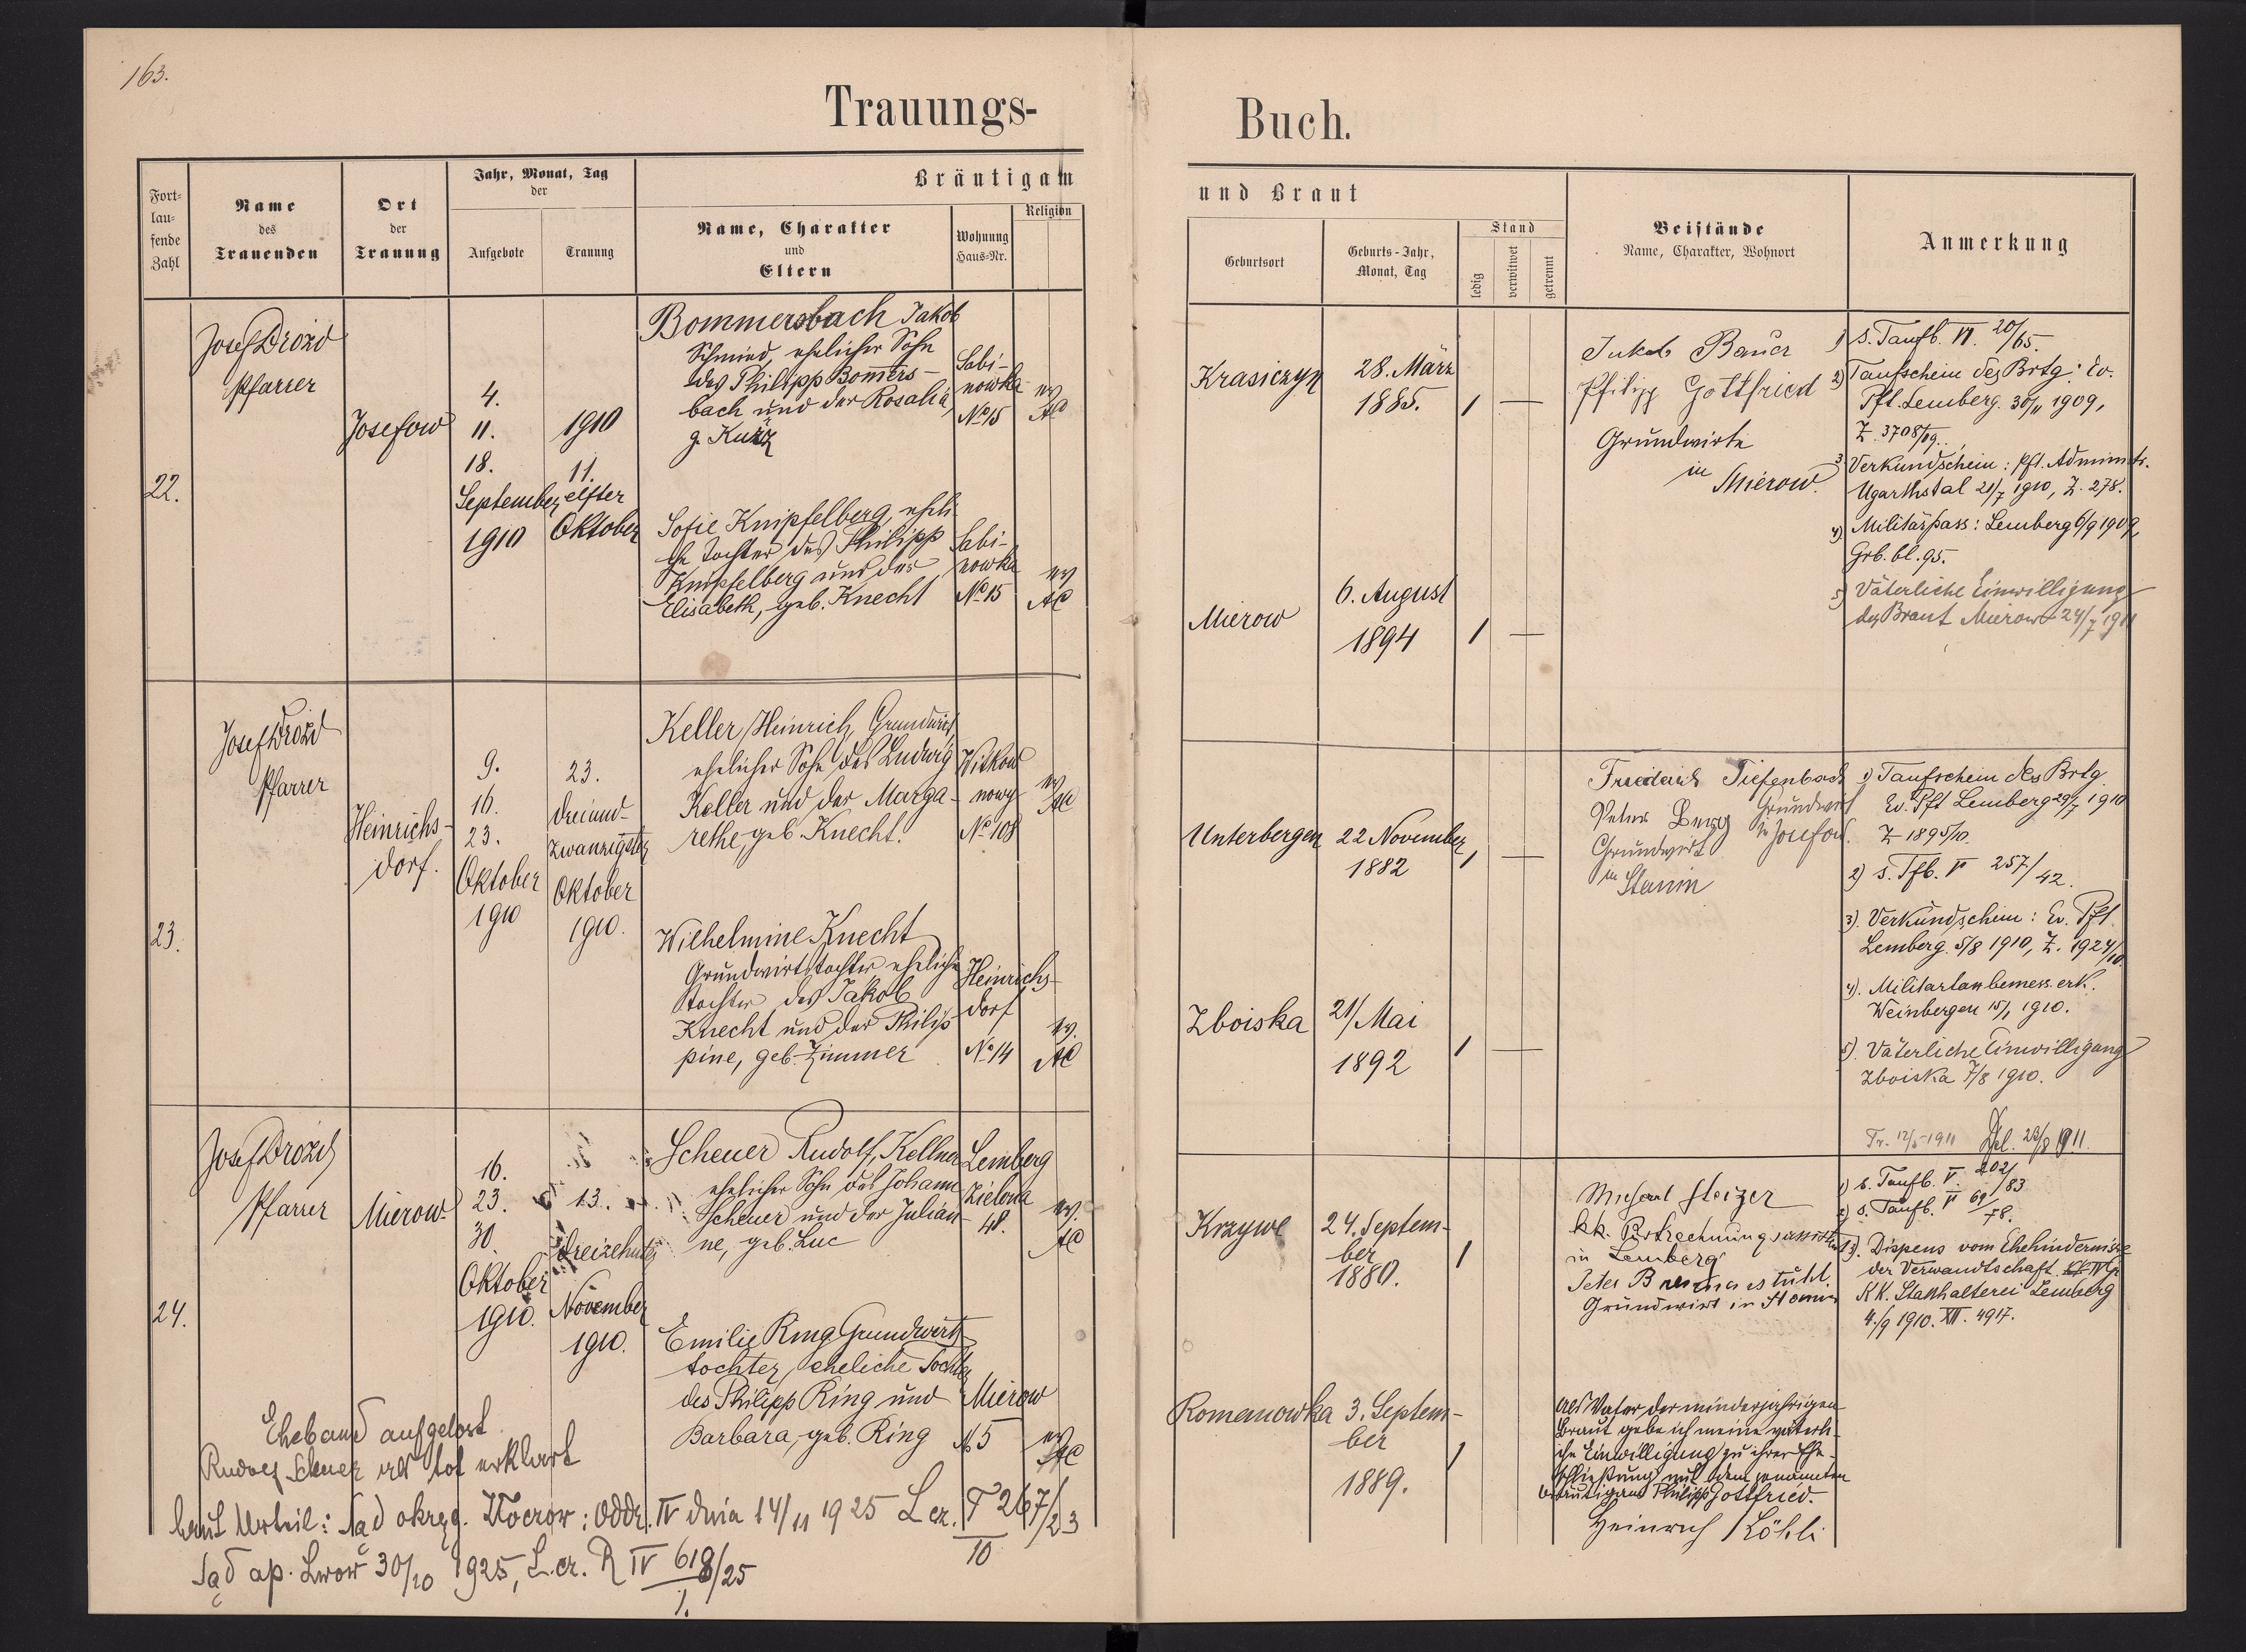 163.
Trauungs-
Buch.
Fort-
lau-
fende
Zahl
Name
des
Trauenden
Ort
der
Trauung
Jahr, Monat, Tag
der
Aufgebote
Trauung
Bräutigam
Name, Charakter
und
Eltern
Wohnung
Haus-Nr.
Religion
und Braut
Geburtsort
Geburts-Jahr,
Monat, Tag
Stand
ledig
verwitwet
getrennt
Beistände
Name, Charakter, Wohnort
Anmerkung
22.
Josef Drozd
Pfarrer
Josefow
4.
11.
18.
September
1910
1910
11.
elfter
Oktober
Bommersbach Jakob
Schmied, ehelicher Sohn
des Philipp Bom̅ers-
bach und der Rosalia,
g. Kurz
Sabi-
nowka
No 15
ev
AC
Sofie Knipfelberg, eheli-
che Tochter des Philipp
Knipfelberg und der
Elisabeth, geb. Knecht
Sabi-
nowka
No 15
ev
AC
Krasiczyn
28. März
1885.
Mierow
6. August
1894
Jakob Bauer
Philipp Gottfried
Grundwirte
in Mierow.
1) s. Taufb. VI. 20/65.
2) Taufschein des Brtg: Ev.
Pft. Lemberg. 30/11 1909,
Z. 3708/09.
3) Verkundschein: Pft. Administr.
Ugartsthal 21/7 1910, Z. 278.
4) Militärpass: Lemberg 6/9 1909,
Grb. bl. 95.
5) Väterliche Einwilligung
der Braut Mierow 24/7 191
23.
Josef Drozd
Pfarrer
Heinrichs-
dorf.
9.
16.
23.
Oktober
1910
23.
dreiund-
zwanzigster
Oktober
1910.
Keller Heinrich, Grundwirt,
ehelicher Sohn des Ludwig
Keller und der Marga-
rethe, geb. Knecht.
Witkow
nowy
No 108
ev
AC
Wilhelmine Knecht
Grundwirtstochter eheliche
Tochter des Jakob
Knecht und der Philip-
pine, geb. Zimmer
Heinrichs-
dorf
No 14
ev.
AC
Unterbergen
22 November
1882
Zboiska
21/Mai
1892
Friedrich Tiefenbach
Grundwirt
in Josefow.
Peter Berg
Grundwirt
in Stanin
1) Taufschein des Brtg
Ev. Pft Lemberg 29/7 1910
Z 1895/10.
2) s. Tfb. V 257/42.
3). Verkündschein: Ev. Pft.
Lemberg. 5/8 1910, Z. 1924/10.
4). Militartaxbemess. erk.
Weinbergen 15/1 1910.
5). Väterliche Einwilligung
Zboiska 7/8 1910.
Tr. 12/5 1911
Del. 23/8 1911.
24.
Josef Drozd
Pfarrer
Mierow
16.
23.
30.
Oktober
1910.
13.
dreizehnter
November
1910.
Scheuer Rudolf, Kellner
ehelicher Sohn des Johann
Scheuer und der Julian-
ne, geb. Luc
Lemberg
Zielona
48.
ev.
AC
Emilie Ring Grundwirts
tochter, eheliche Tochter
des Philipp Ring und
Barbara, geb. Ring
Mierow
No 5
ev
AC
Krzywe
24. Septem-
ber
1880.
Romanowka
3. Septem-
ber
1889.
Michael
kk.
in Lemberg
Peter
Grundwirt in
1) s. Taufb. V. 202/83
2) s. Taufb. V 69/78.
3). Dispens vom Ehehindernisse
der Verwandtschaft IV Gr
KK. Statthalterei Lemberg
4./9 1910. XII. 4917.
Als Vater der minderjährigen
Braut gebe ich meine väterli-
che Einwilligung zu ihrer Ehe-
schließung mit dem genannten
Bräutigam Philipp Gottfried.
Heinrich Köhli
Eheband aufgelöst
Rudolf Scheuer als tot erklärt
laut Urteil: Sąd okręg. Złoczow: Oddz. IV dnia 14/11 1925 L cz. T 267/23
10
Sąd ap. Lwow 30/10 1925, L. cz. R IV 618/25
1.